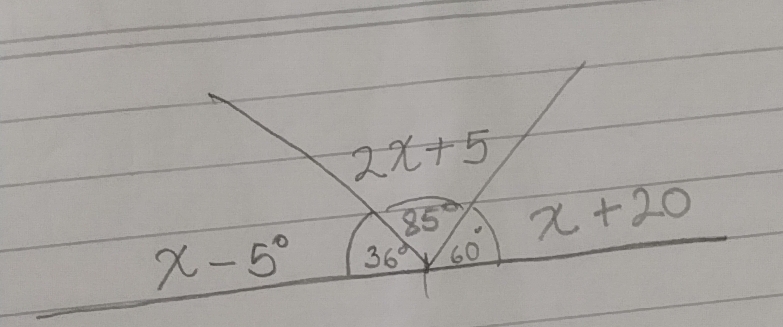 2x+5
85°
x-5°
36°
60°
x+20